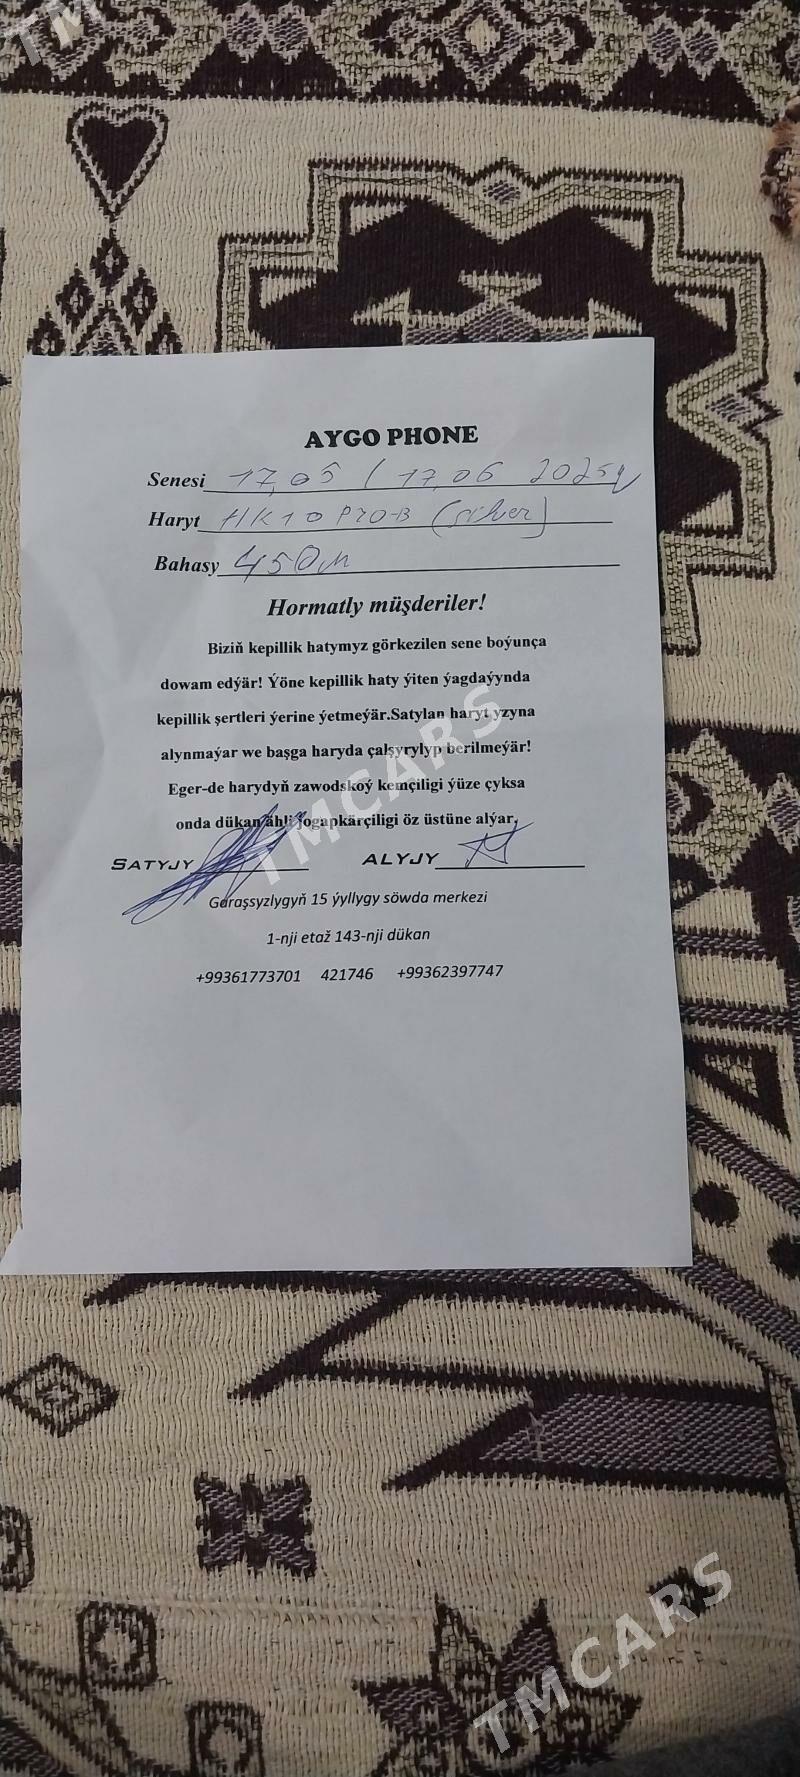 TM
AYGO PHONE
Senesi 17,05 / 17,06 2025ý
Haryt HK10 PRO-B (silver)
Bahasy 450m
Hormatly müşderiler!
Biziň kepillik hatymyz görkezilen sene boýunça
dowam edýär! Ýöne kepillik haty ýiten ýagdaýynda
kepillik şertleri ýerine ýetmeýär.Satylan haryt yzyna
alynmaýar we başga haryda çalşyrylyp berilmeýär!
Eger-de harydyň zawodskoý kemçiligi ýüze çyksa
onda dükan ähli jogapkärçiligi öz üstüne alýar.
SATYJY ALYJY
Garaşsyzlygyň 15 ýyllygy söwda merkezi
1-nji etaž 143-nji dükan
+99361773701 421746 +99362397747
TMCARS
TMCARS